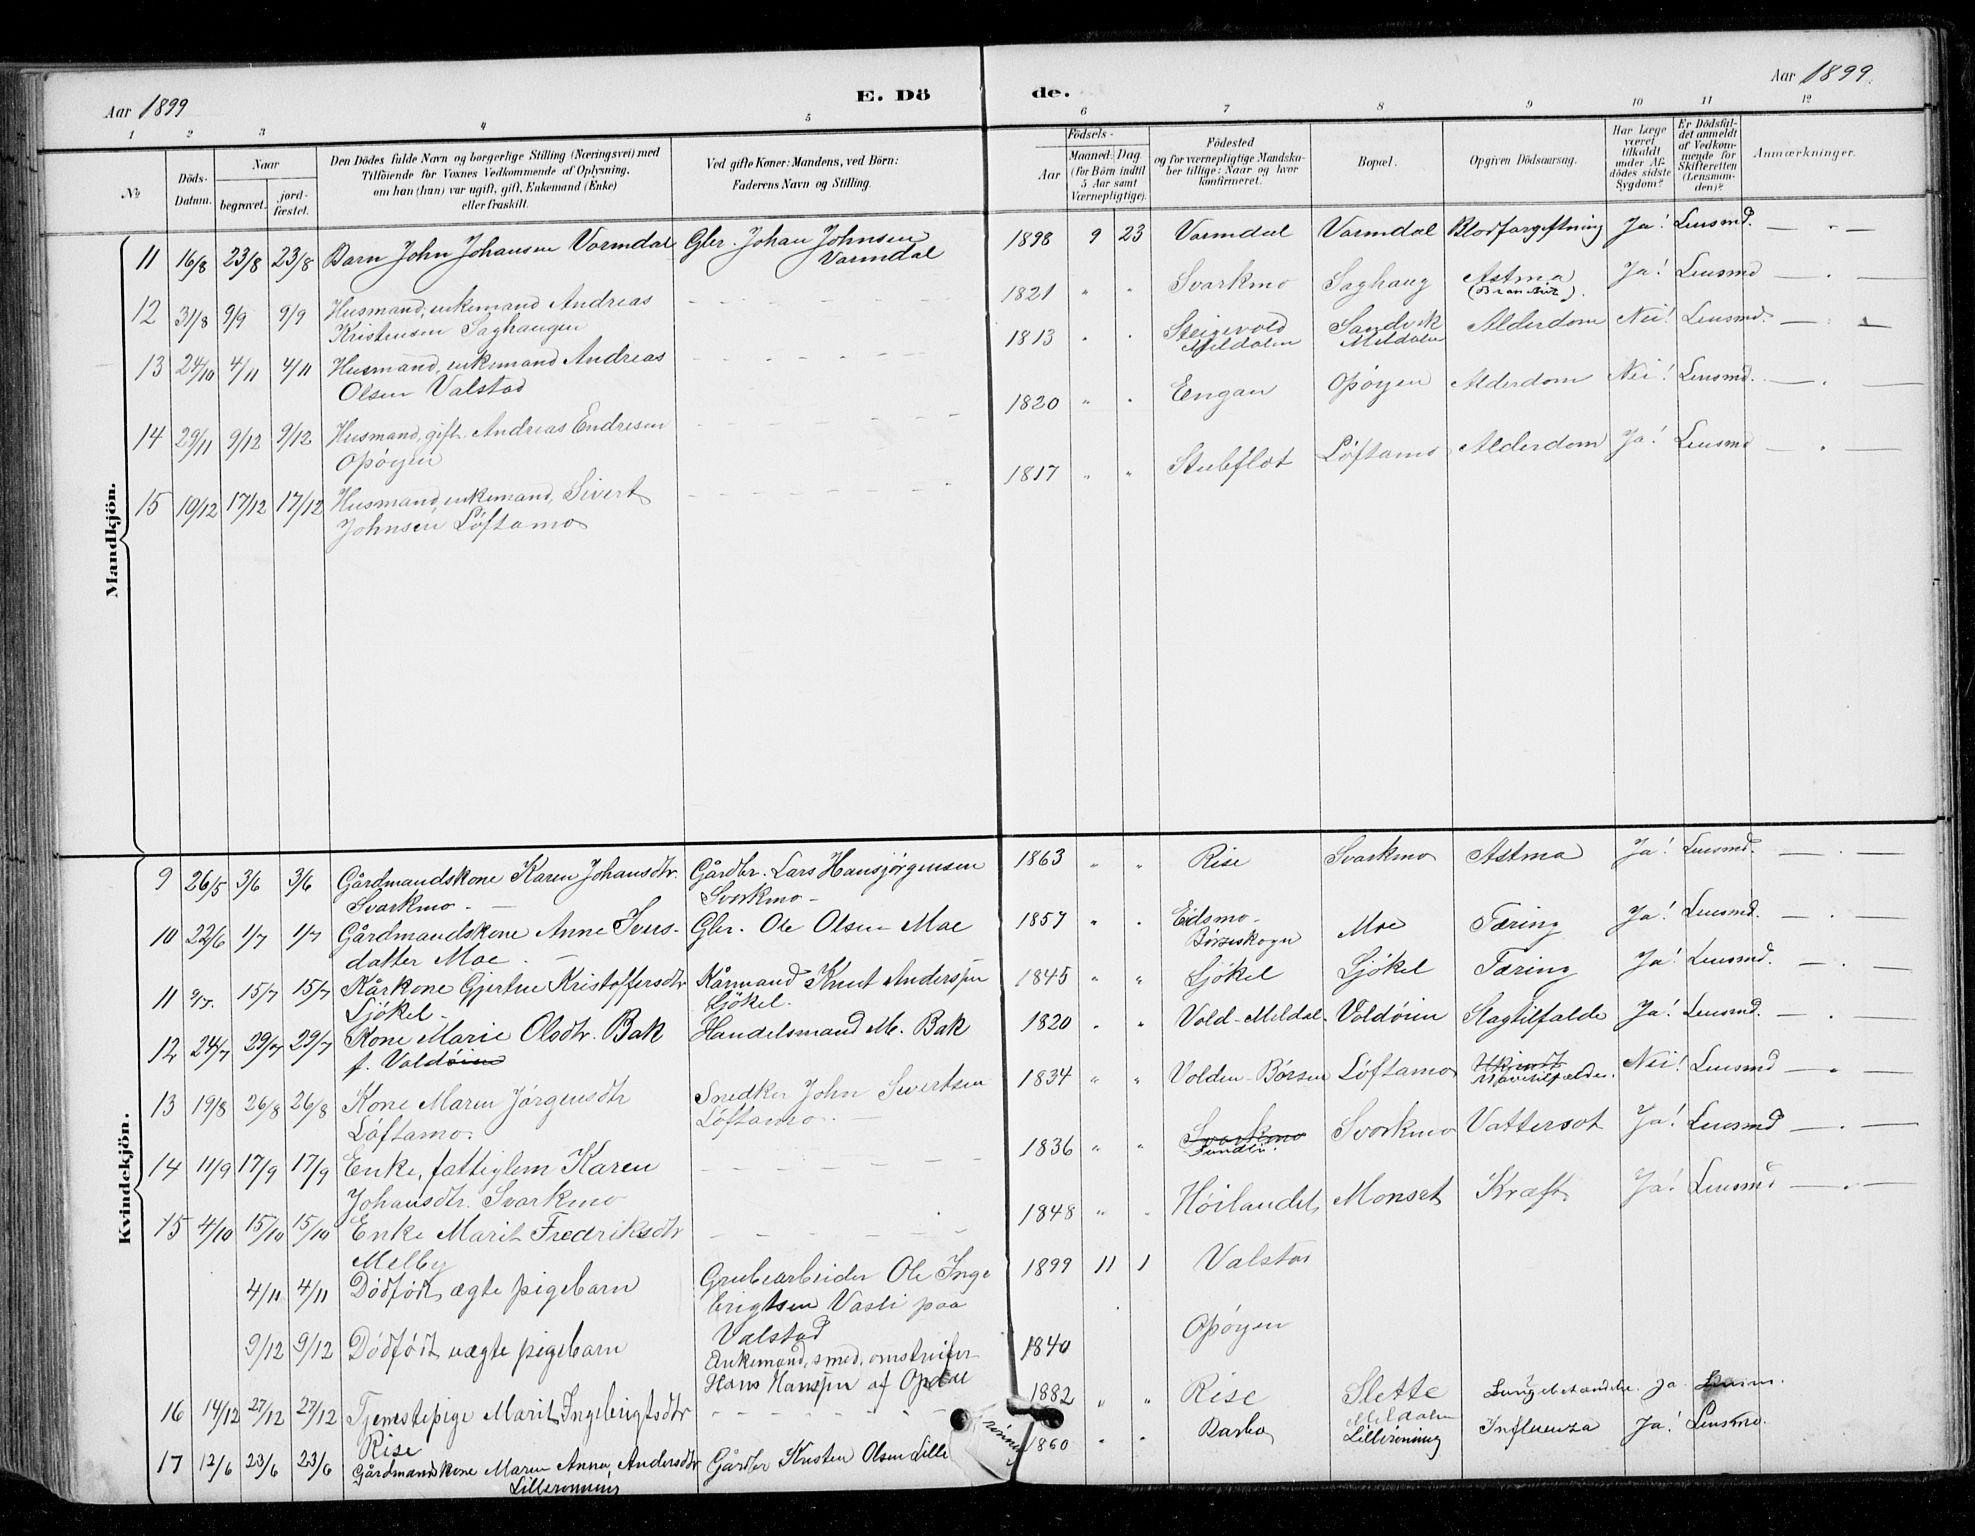 Aar 1899
E. Dö
de.
Aar 1899.
1 2 3 4 5 6 7 8 9 10 11 12
No.
Döds-Datum.
Naar
begravet.
jord-fæstet.
Den Dödes fulde Navn og borgerlige Stilling (Næringsvei) med
Tilföiende for Voxnes Vedkommende af Oplysning,
om han (hun) var ugift, gift, Enkemand (Enke)
eller fraskilt.
Ved gifte Koner: Mandens, ved Börn:
Faderens Navn og Stilling.
Födsels-
Aar
Maaned. Dag
(for Börn indtil
5 Aar samt
Værnepligtige).
Födested
og for værnepligtige Mandska-
ber tillige: Naar og hvor
konfirmeret.
Bopæl.
Opgiven Dödsaarsag.
Har Læge
været
tilkaldt
under Af-
dödes sidste
Sygdom?
Er Dödsfal-
det anmeldt
af Vedkom-
mende for
Skifteretten
(Lensman-
den)?
Anmærkninger.
Mandkjön.
11 16/8 23/8 23/8 Barn John Johansen Vormdal Gbr. Johan Johnsen 1898 9 23 Vormdal Vormdal Blodforgiftning Ja! Lensmd. — " —
Vormdal
12 31/8 9/9 9/9 Husmand, enkemand Andreas - - - - 1821 " " Svarkmo Saghaug Astma Ja! Lensmd — . —
Kristensen Saghaugen
13 24/10 4/11 4/11 Husmand, enkemand Andreas - - - - 1813 " " Steigevold Sandvik Alderdom Nei! Lensmd. — . —
Olsen Valstad Meldalen Meldalen
14 29/11 9/12 9/12 Husmand, gift, Andreas Endresen - - - - 1820 " " Eengan Opøyen Alderdom Nei! Lensmd. — . —
Opøyen
15 10/12 17/12 17/12 Husmand, enkemand, Sivert - - - - 1817 " " Stubflot Löftamo Alderdom Ja! Lensmd — " —
Johnsen Löftamo
Kvindekjön.
9 26/5 3/6 3/6 Gårdmandskone Karen Johansdtr. Gårdbr. Lars Hansjørgensen 1863 " " Rise Svarkmo Astma Ja! Lensmd. — . —
Svarkmo. — Svorkmo -
10 22/6 1/7 1/7 Gårdmandskone Anne Ivers- Gbr. Ole Olsen Moe 1857 " " Eidsmo- Moe Tæring Ja! Lensmd. — . —
datter Moe. — Børseskogn
11 9/7. 15/7 15/7 Kårkone Gjertine Kristoffersdtr Kårmand Knut Anderssen 1845 " " Ljøkel Ljøkel Tæring Ja! Lensmd. — . —
Ljökel. Ljökel.
12 24/7 29/7 29/7 Kone Marie Olsdtr. Bak Handelsmand M. Bak 1820 " " Vold-Meldal. Voldøien Slagtilfælde Ja! Lensmd. — . —
f. Voldøien
13 19/8 26/8 26/8 Kone Maren Jørgensdtr Snedker John Sivertsen 1834 " " Volden-Børsen Löftamo Ukjendt Nei! Lensmd — " —
Löftamo. Löftamo. —
14 11/9 17/9 17/9 Enke, fattiglem Karen - - - - 1836 " " Svarkmo Svorkmo Vattersot Ja! Lensmd — . —
Johansdtr. Svarkmo
15 4/10 15/10 15/10 Enke Marit Fredriksdtr - - - - 1848 " " Høilandet Monset Kræft Ja! Lensmd — . —
Melby
4/11 4/11 Dödfödt, ægte pigebarn Grubearbeider Ole Inge- 1899 11 1 Valstad
brigtsen Vasli paa
Valstad
9/12 9/12 Dödfödt uægte pigebarn Enkemand, smed, omstreifer 1840 Opøyen
Hans Hanssen af Opdal
16 14/12 27/12 27/12 Tjenestepige Marit Ingebrigtsdtr - - - - 1882 " " Rise Slette Lungebetændelse Ja
Rise Meldalen
17 12/6 23/6 23/6 Gårdmandskone Maren Anna, Andersdtr Gårdbr Kristen Olsen Lille 1860 " " Lillerønning Influenza Ja! Lensmd.
Lillerönning